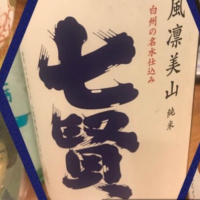 風凛美山 純米
白州の名水仕込み
七賢